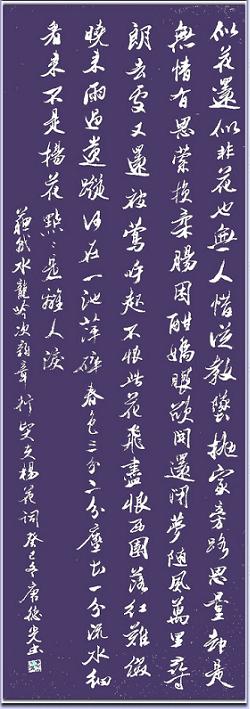 似花還似非花也無人惜從教墜拋家旁路思量却是
無情有思縈損柔腸困酣嬌眼欲開還閉夢隨風萬里尋
郎去處又還被鶯呼起不恨此花飛盡恨西園落紅難綴
曉來雨過遺蹤何在一池萍碎春色三分二分塵土一分流水細
看來不是楊花點〻是離人淚
蘇軾水龍吟次韻章質夫楊花詞癸巳冬唐光書